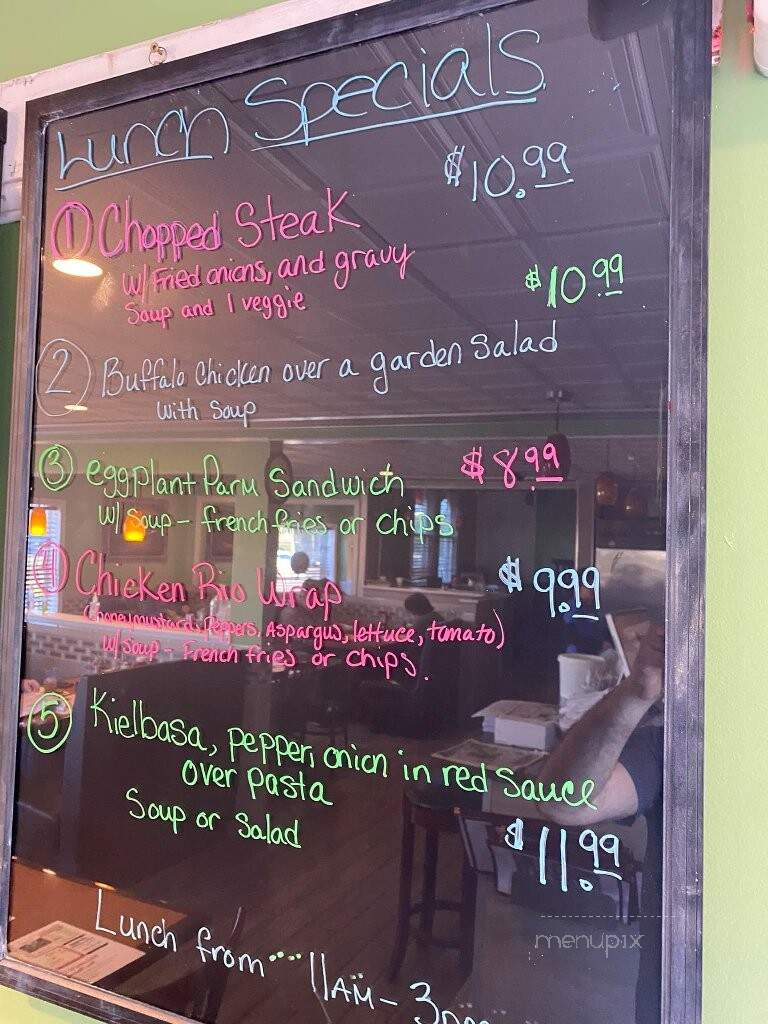 Lunch Specials
$10.99
① Chopped Steak
w/ Fried onions, and gravy
Soup and 1 veggie
$10.99
② Buffalo Chicken over a garden Salad
with Soup
③ eggplant Parm Sandwich
$8.99
w/ Soup - french fries or chips
④ Chicken Rio Wrap
$9.99
(honeymustard, Peppers, Aspargus, lettuce, tomato)
w/ Soup - French fries or chips.
⑤ Kielbasa, pepper, onion in red Sauce
over pasta
Soup or Salad
$11.99
Lunch from ... 11AM - 3pm
menupix